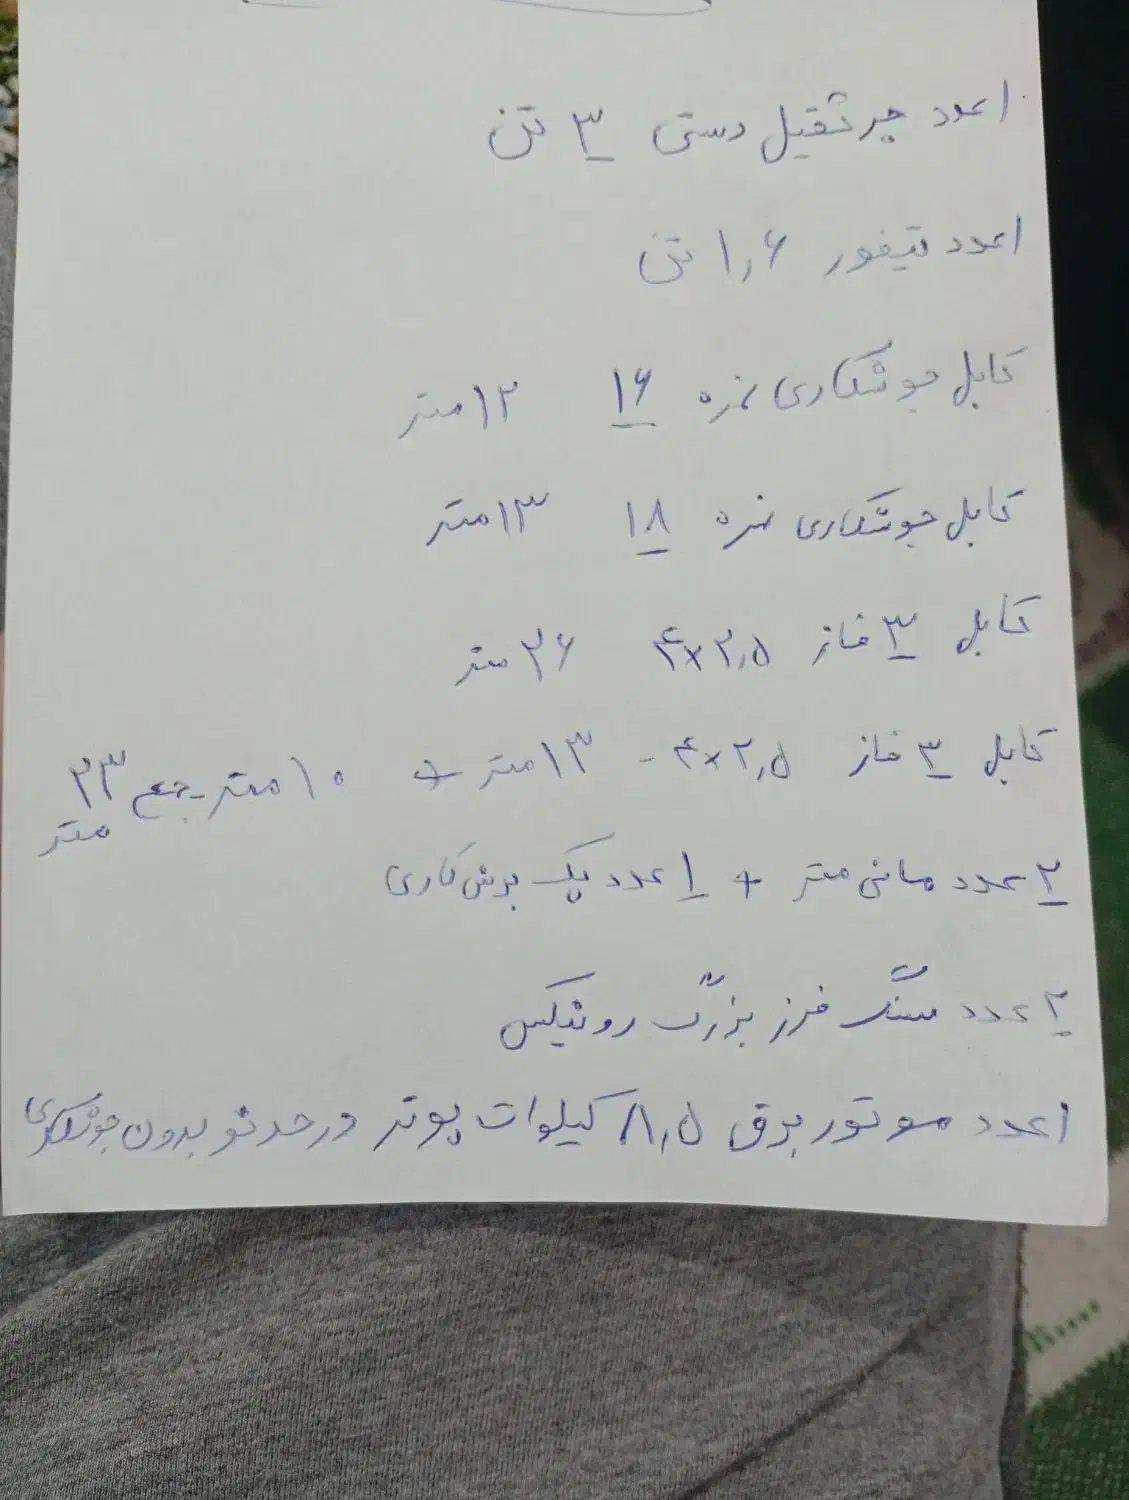 ۱ عدد جرثقیل دستی ۳ تن
۱ عدد تیفور ۱,۶ تن
کابل جوشکاری نمره ۱۶ ۱۲ متر
کابل جوشکاری نمره ۱۸ ۱۳ متر
کابل ۳ فاز ۴×۲,۵ ۲۶ متر
کابل ۳ فاز ۴×۲,۵ - ۱۳ متر + ۱۰ متر جمع ۲۳ متر
۲ عدد مانی متر + ۱ عدد پک برش کاری
۲ عدد سنگ فرز بزرگ رونیکس
۱ عدد موتور برق ۸,۵ کیلوات پوتر در حد نو بدون جوشکاری